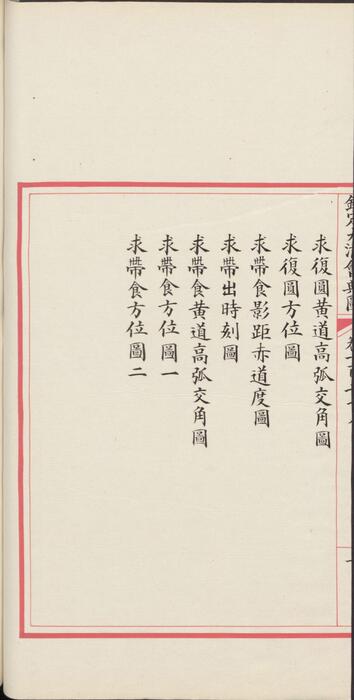 求復圓黃道高弧交角圖
求復圓方位圖
求帶食影距赤道度圖
求帶出時刻圖
求帶食黃道高弧交角圖
求帶食方位圖一
求帶食方位圖二